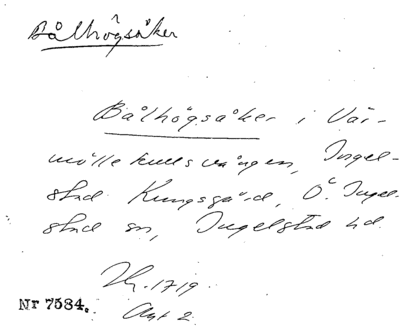 Bålhögsåker
Bålhögsåker i Vär-
möllekullsvången, Ingel-
stad Kungsgård, Ö. Ingel-
stad sn, Ingelstad hd.
1719.
Akt 2
Nr 7584.